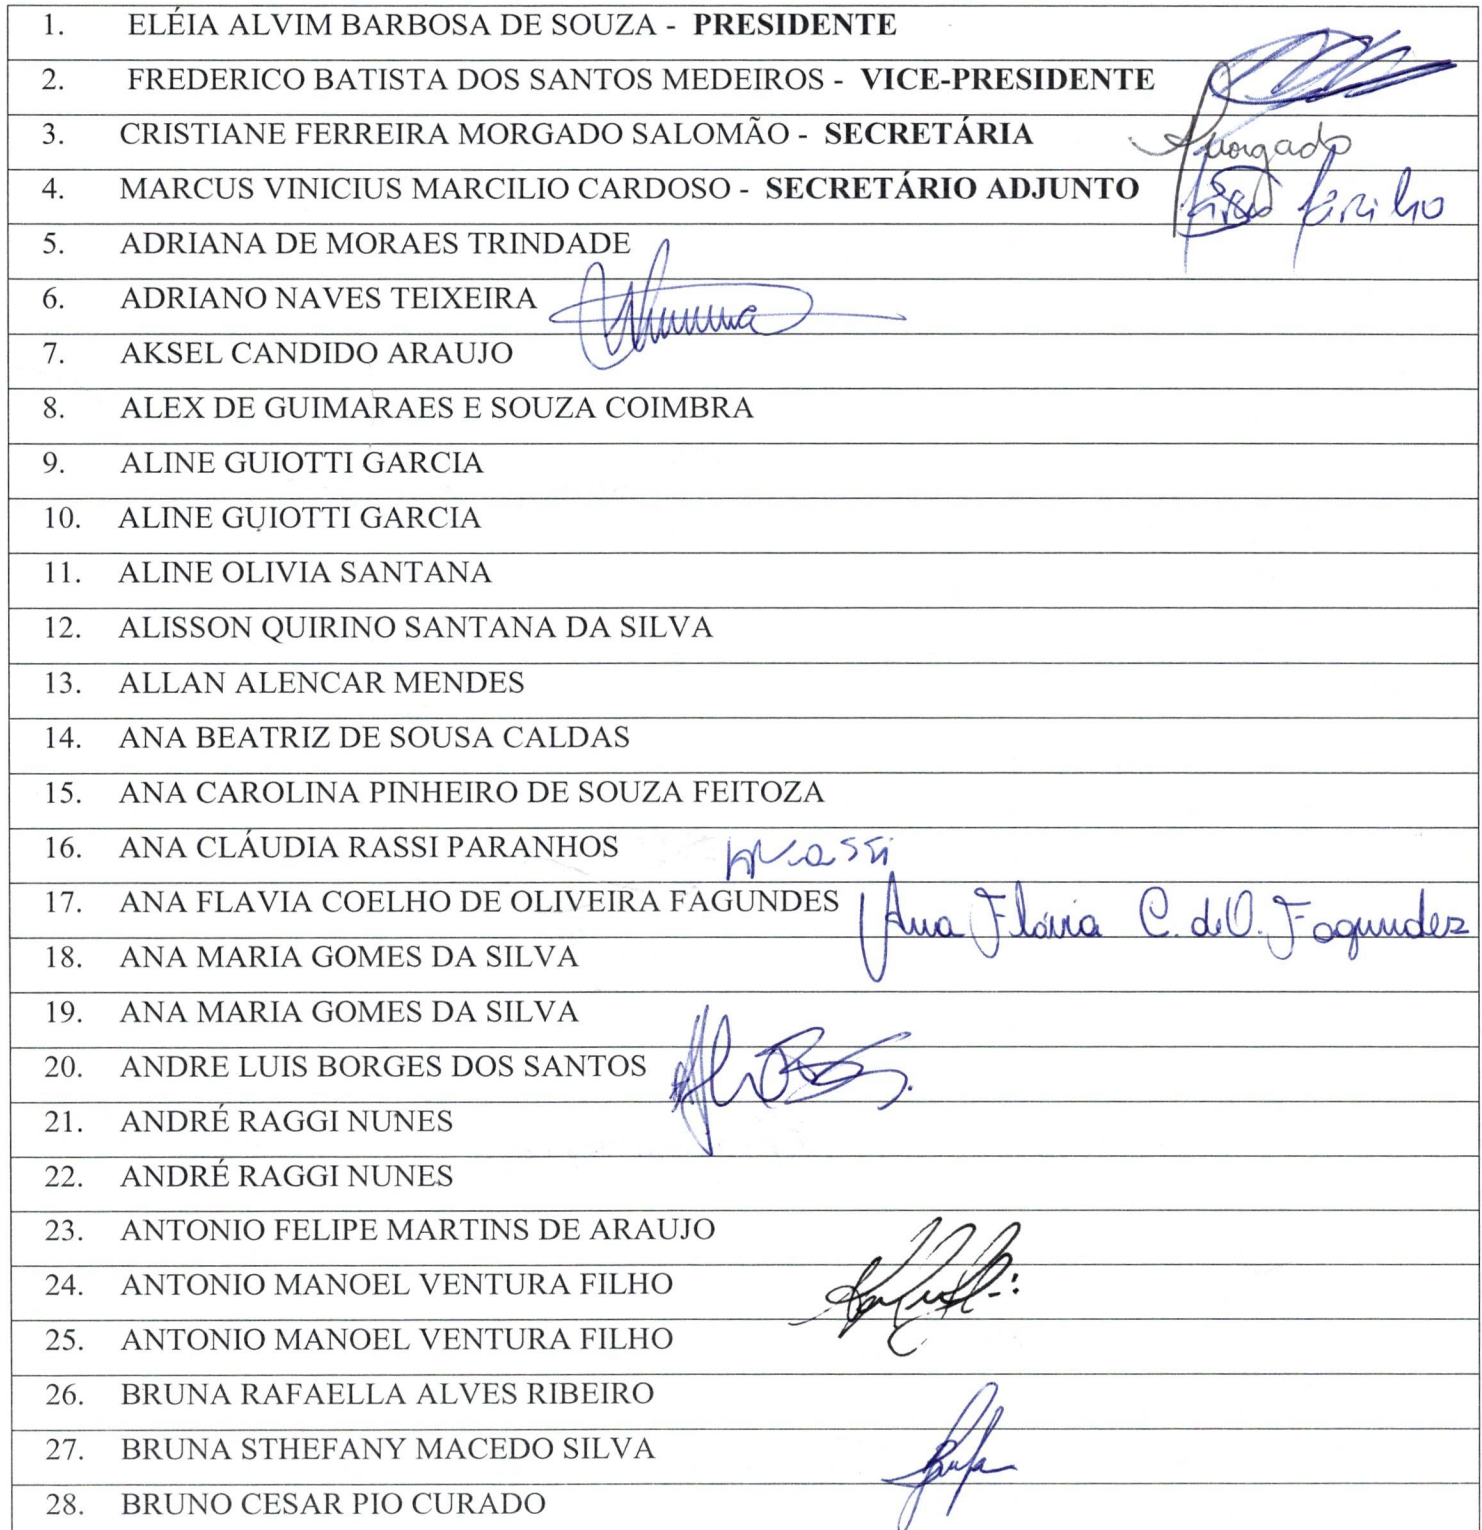 1. ELÉIA ALVIM BARBOSA DE SOUZA - PRESIDENTE
2. FREDERICO BATISTA DOS SANTOS MEDEIROS - VICE-PRESIDENTE
3. CRISTIANE FERREIRA MORGADO SALOMÃO - SECRETÁRIA Morgado
4. MARCUS VINICIUS MARCILIO CARDOSO - SECRETÁRIO ADJUNTO
5. ADRIANA DE MORAES TRINDADE
6. ADRIANO NAVES TEIXEIRA
7. AKSEL CANDIDO ARAUJO
8. ALEX DE GUIMARAES E SOUZA COIMBRA
9. ALINE GUIOTTI GARCIA
10. ALINE GUIOTTI GARCIA
11. ALINE OLIVIA SANTANA
12. ALISSON QUIRINO SANTANA DA SILVA
13. ALLAN ALENCAR MENDES
14. ANA BEATRIZ DE SOUSA CALDAS
15. ANA CAROLINA PINHEIRO DE SOUZA FEITOZA
16. ANA CLÁUDIA RASSI PARANHOS
17. ANA FLAVIA COELHO DE OLIVEIRA FAGUNDES Ana Flávia C. de O. Fagundes
18. ANA MARIA GOMES DA SILVA
19. ANA MARIA GOMES DA SILVA
20. ANDRE LUIS BORGES DOS SANTOS
21. ANDRÉ RAGGI NUNES
22. ANDRÉ RAGGI NUNES
23. ANTONIO FELIPE MARTINS DE ARAUJO
24. ANTONIO MANOEL VENTURA FILHO
25. ANTONIO MANOEL VENTURA FILHO
26. BRUNA RAFAELLA ALVES RIBEIRO
27. BRUNA STHEFANY MACEDO SILVA
28. BRUNO CESAR PIO CURADO